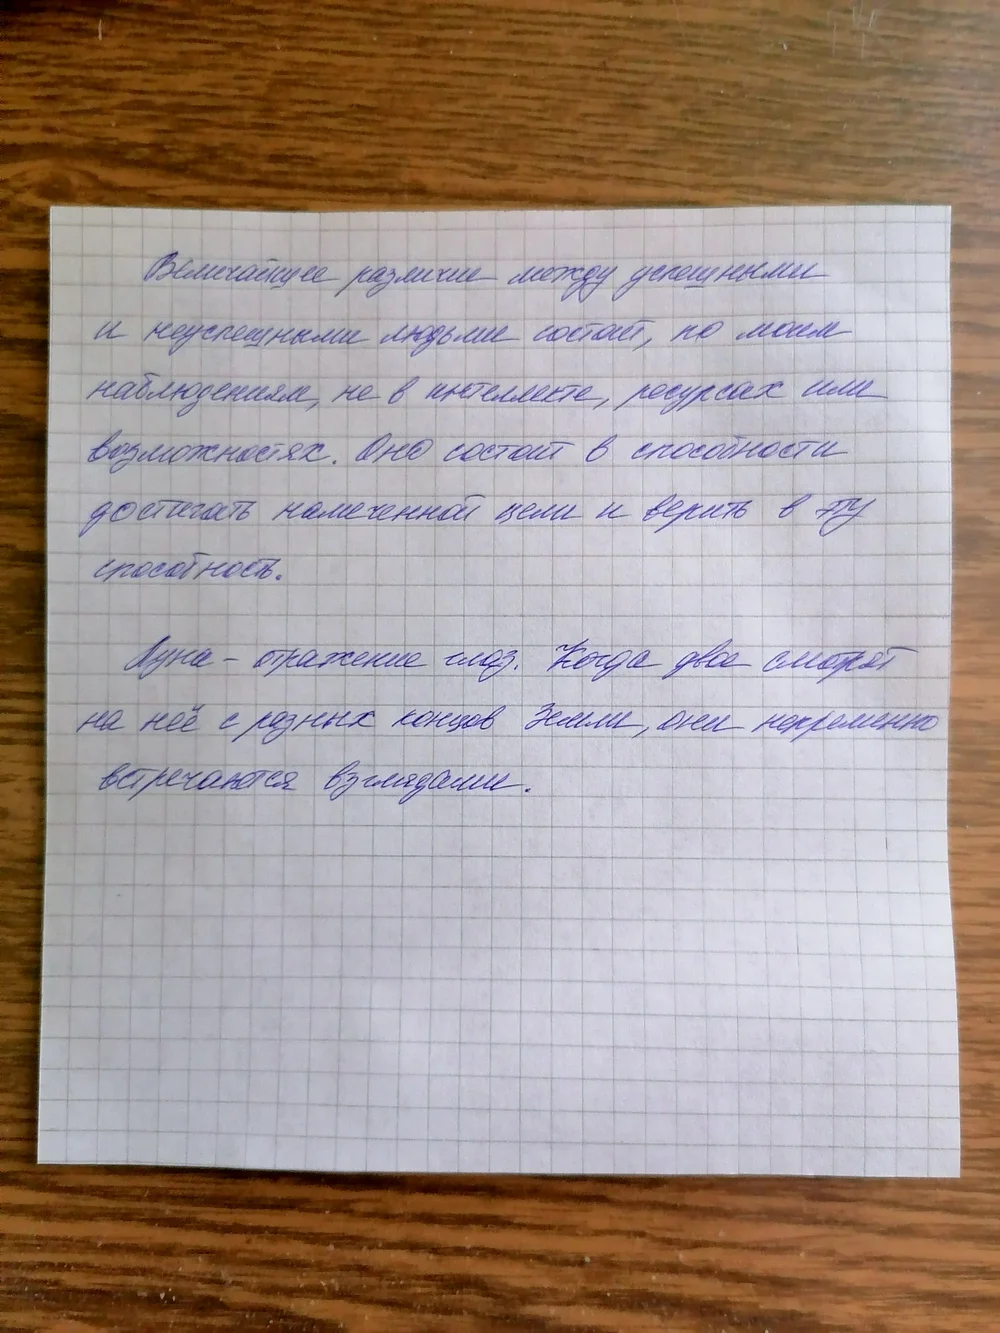 Величайшее различие между успешными
и неуспешными людьми состоит, по моим
наблюдениям, не в интеллекте, ресурсах или
возможностях. Оно состоит в способности
достигать намеченной цели и верить в эту
способность.
Луна - отражение глаз. Когда двое смотрят
на неё с разных концов Земли, они непременно
встречаются взглядами.